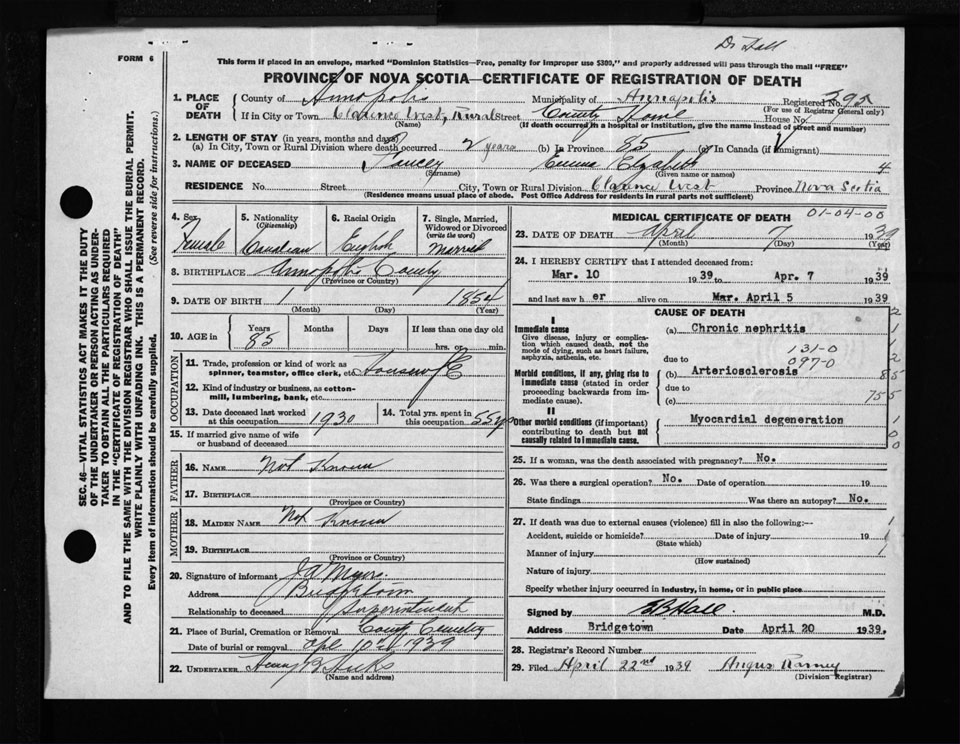 Dr Hall
FORM 6
This form if placed in an envelope, marked "Dominion Statistics—Free, penalty for improper use $300," and properly addressed will pass through the mail "FREE"
PROVINCE OF NOVA SCOTIA—CERTIFICATE OF REGISTRATION OF DEATH
1. PLACE OF DEATH
County of Annapolis Municipality of Annapolis Registered No. 395
(For use of Registrar General only)
If in City or Town Clarence West, Rural Street County Home House No.
(Name) (If death occurred in a hospital or institution, give the name instead of street and number)
2. LENGTH OF STAY (in years, months and days)
(a) In City, Town or Rural Division where death occurred 2 years (b) In Province 85 (c) In Canada (if immigrant)
3. NAME OF DECEASED Emma Elizabeth 4
(Surname) (Given name or names)
RESIDENCE No. Street City, Town or Rural Division Clarence West Province Nova Scotia
(Residence means usual place of abode. Post Office Address for residents in rural parts not sufficient)
4. Sex Female
5. Nationality (Citizenship) Canadian
6. Racial Origin English
7. Single, Married, Widowed or Divorced (write the word) Married
8. BIRTHPLACE Annapolis County
(Province or Country)
9. DATE OF BIRTH 1 1854
(Month) (Day) (Year)
10. AGE in Years 85 Months Days If less than one day old
hrs. or min.
OCCUPATION
11. Trade, profession or kind of work as spinner, teamster, office clerk, etc. Housewife
12. Kind of industry or business, as cotton-mill, lumbering, bank, etc.
13. Date deceased last worked at this occupation 1930
14. Total yrs. spent in this occupation 55 yrs
15. If married give name of wife or husband of deceased
FATHER
16. NAME Not Known
17. BIRTHPLACE
(Province or Country)
MOTHER
18. MAIDEN NAME Not Known
19. BIRTHPLACE
(Province or Country)
20. Signature of informant J A Myers
Address Bridgetown
Relationship to deceased Superintendent
21. Place of Burial, Cremation or Removal County Cemetery
Date of burial or removal Apl 10th 1939
22. UNDERTAKER Henry B Hicks
(Name and address)
MEDICAL CERTIFICATE OF DEATH 01-04-00
23. DATE OF DEATH April 7 1939
(Month) (Day) (Year)
24. I HEREBY CERTIFY that I attended deceased from:
Mar. 10 1939 to Apr. 7 1939
and last saw h er alive on Mar. April 5 1939
CAUSE OF DEATH
I
Immediate cause
Give disease, injury or complication which caused death, not the mode of dying, such as heart failure, asphyxia, asthenia, etc.
(a) Chronic nephritis
131-0
due to 097-0
Morbid conditions, if any, giving rise to immediate cause (stated in order proceeding backwards from immediate cause).
(b) Arteriosclerosis
due to
(c)
II
Other morbid conditions (if important) contributing to death but not causally related to immediate cause.
Myocardial degeneration
25. If a woman, was the death associated with pregnancy? No.
26. Was there a surgical operation? No. Date of operation 19
State findings Was there an autopsy? No.
27. If death was due to external causes (violence) fill in also the following:—
Accident, suicide or homicide? Date of injury 19
(State which)
Manner of injury
(How sustained)
Nature of injury
Specify whether injury occurred in industry, in home, or in public place
Signed by Hall M.D.
Address Bridgetown Date April 20 1939.
28. Registrar's Record Number
29. Filed April 22nd 1939 Angus Ramey
(Division Registrar)
SEC. 46—VITAL STATISTICS ACT MAKES IT THE DUTY
OF THE UNDERTAKER OR PERSON ACTING AS UNDER-
TAKER TO OBTAIN ALL THE PARTICULARS REQUIRED
IN THE "CERTIFICATE OF REGISTRATION OF DEATH"
AND TO FILE THE SAME WITH THE DIVISION REGISTRAR WHO SHALL ISSUE THE BURIAL PERMIT.
WRITE PLAINLY WITH UNFADING INK. THIS IS A PERMANENT RECORD.
Every item of information should be carefully supplied. (See reverse side for instructions.)